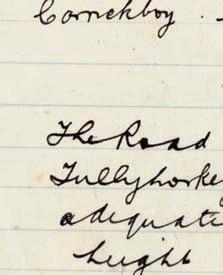 Cornekboy.
The Road
Tullyhorkey
adequate
height